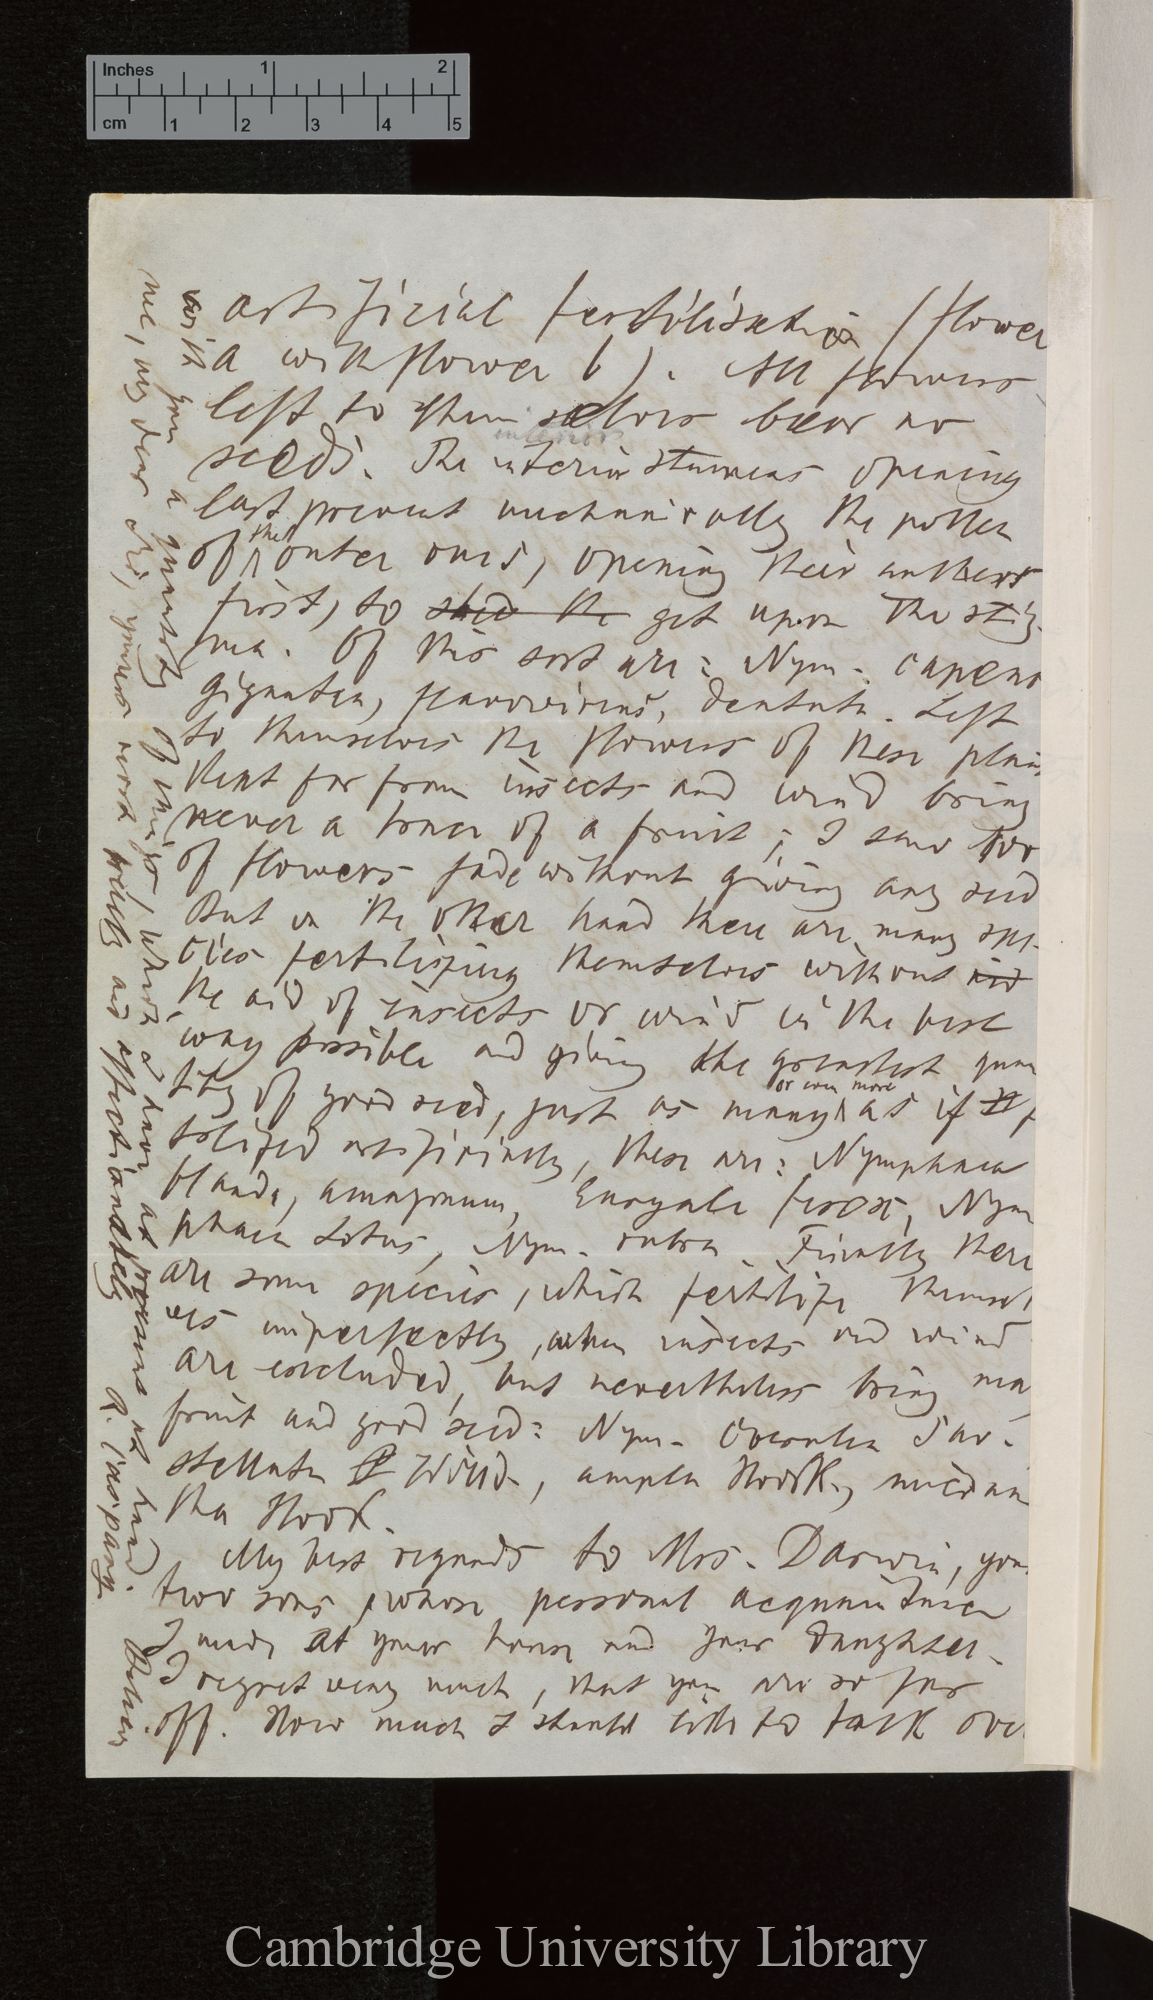 Inches 1 2
cm 1 2 3 4 5
artificial fertilisation (flower
a with flower b). All flowers
left to themselves bear no
interior
seeds. The interior stamens opening
last prevent mechanically the pollen
of the outer ones, opening their anthers
first, to shed the get upon the stig-
ma. Of this sort are: Nym. capens
gigantea, flavovirens, dentata. Left
to themselves the flowers of these plants
kept far from insects and wind bring
never a trace of a fruit; I saw
of flowers fade without giving any seed
But on the other hand there are many spe-
cies fertilizing themselves without aid
the aid of insects or wind in the best
way possible and giving the greatest quan
tity of good seed, just as many or even more as if f
tilized artificially, these are: Nymphaea
blanda, amazonum, Euryale ferox, Nym
phaea Lotus, Nym. rubra. Finally there
are some species, which fertilize themsel
ves imperfectly, when insects and wind
are excluded, but nevertheless bring ma
fruit and good seed: Nym. coerulea Sav.
stellata Willd., ampla Hook., micran
tha Hook.
My best regards to Mrs. Darwin, your
two sons, whose personal acquaintance
I made at your house and your daughter.
I regret very much, that you are so far
off. How much I should like to talk over
with you a quantity of things, which I have at present at hand. Believe
me, my dear Sir, yours most truly and affectionately R. Caspary.
Cambridge University Library